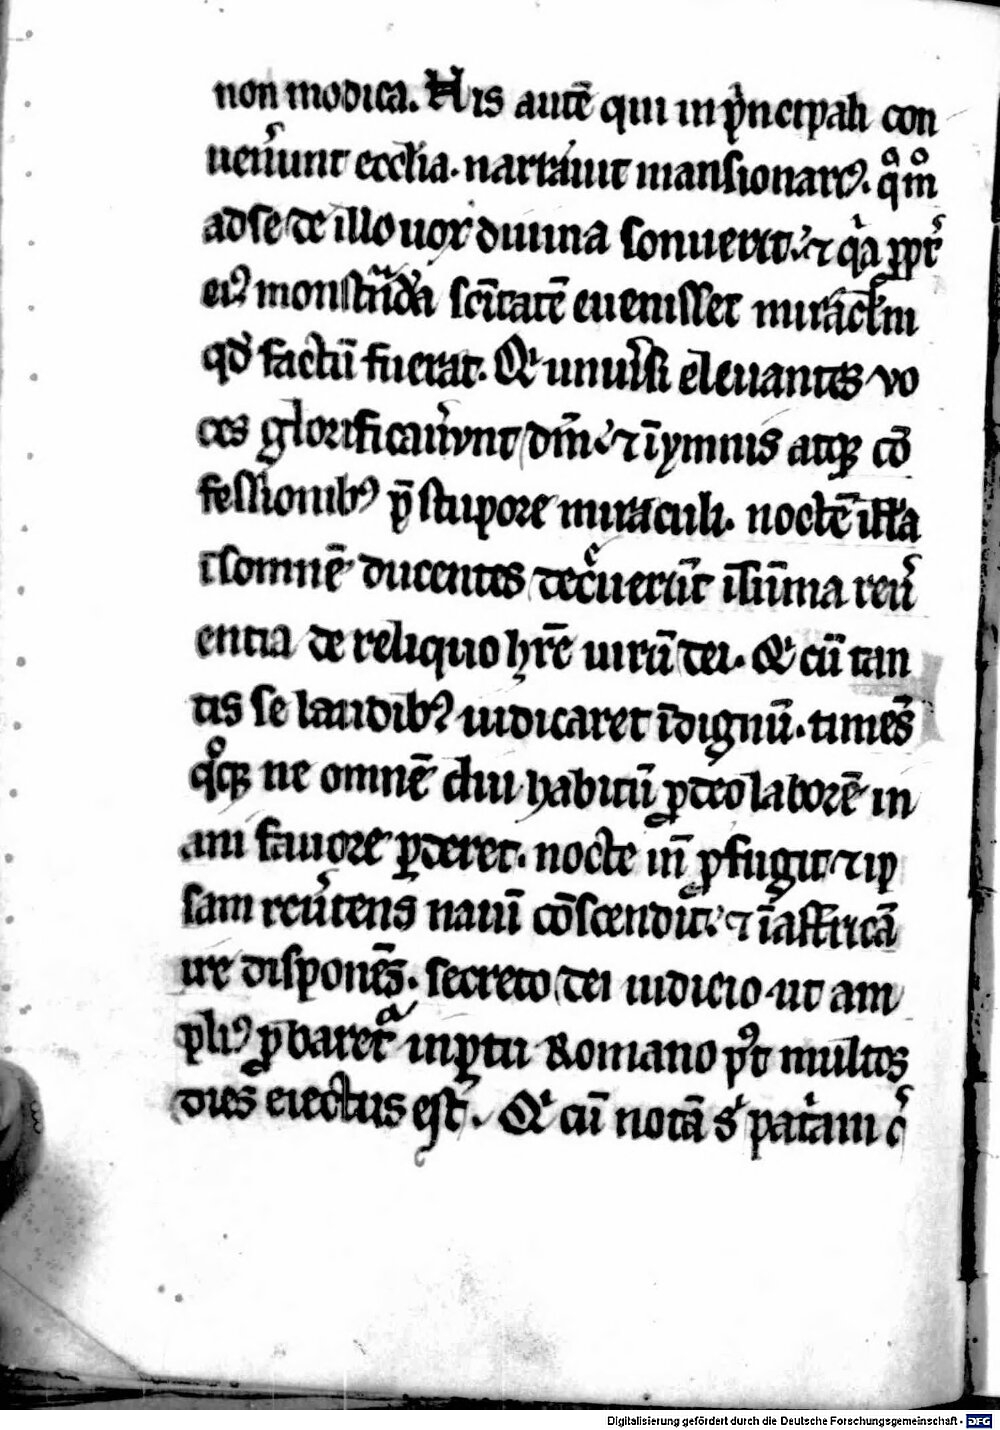 non modica. His autē qui in pͥncipali con
ueneͬunt eccl̄ia. narrauit mansionari⁹. qͣmͦ
ad se de illo uox diuina sonuerit. ⁊ qͥa ꝓpͥt
ei⁹ monstrͣndā sc̄itatē euenisset miracl̄m
qd̄ factū fuerat. Et uniuͥsi eleuantes vo
ces glorificauͥunt dn̄m. ⁊ īymnis atqꝫ cō
fessionib⁹ p̄ stupore miraculi. noctē illa
īsomnē ducentes decͥuerūt ī sūma reuͥ
entia de reliquo hr̄e uirū dei. Et cū tan
tis se laudib⁹ iudicaret īdignū. timēs
qͦqꝫ ne omnē diu habitū ꝓ deo laborē in
ani fauore ꝑderet. nocte in̄ ꝓfugit ⁊ ip
sam reuͥtens nauī cōscendit. ⁊ ī affricā
ire disponēs. secreto dei iudicio ut am
pli⁹ ꝓbaretͬ in portu Romano p⁹t multos
dies eiectus est. Et cū notā sͥ patͥam cͥ
Digitalisierung gefördert durch die Deutsche Forschungsgemeinschaft - DFG